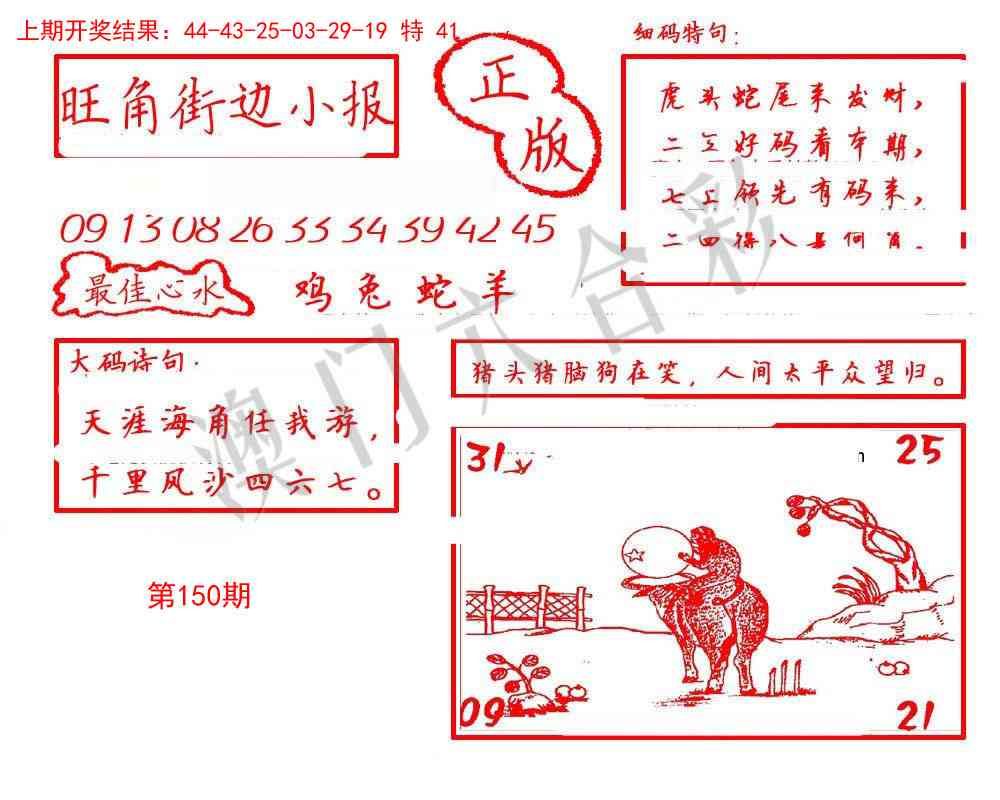 上期开奖结果：44-43-25-03-29-19 特 41
细码特句：
旺角街边小报
正版
虎头蛇尾来发财，
二五好码看本期，
七上领先有码来，
二四得八是何肖.
09 13 08 26 33 34 39 42 45
最佳心水
鸡兔蛇羊
大码诗句：
天涯海角任我游，
千里风沙四六七。
猪头猪脑狗在笑，人间太平众望归。
31
25
09
21
第150期
澳门六合彩